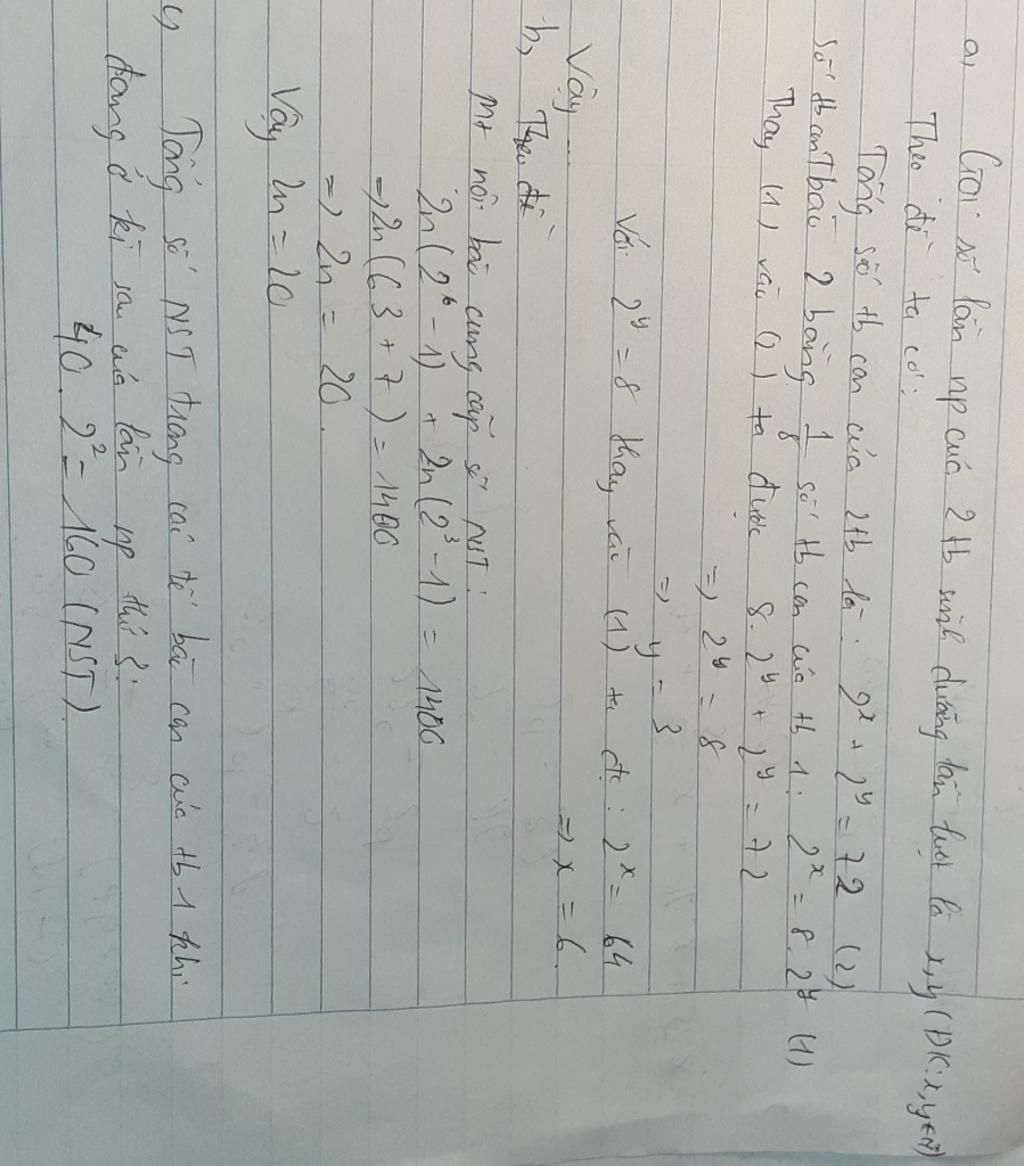 a, Gọi số lần np của 2 tb sinh dưỡng lần lượt là x, y (ĐK: x, y ∈ N)
Theo đề ta có:
Tổng số tb con của 2tb là: 2^x + 2^y = 72 (2)
số tb con Tbào 2 bằng 1/8 số tb con của tb 1: 2^x = 8. 2^y (1)
Thay (1) vào (2) ta được 8. 2^y + 2^y = 72
=> 2^y = 8
=> y = 3
Với 2^y = 8 thay vào (1) ta đc: 2^x = 64
=> x = 6.
Vậy...
b, Theo đề
Mt nội bào cung cấp số NST:
2n(2^6 - 1) + 2n(2^3 - 1) = 1400
=> 2n(63 + 7) = 1400
=> 2n = 20.
Vậy 2n = 20
Tổng số NST trong các tế bào con của tb 1 khi
đang ở kì sau của lần np thứ 3:
40. 2^2 = 160 (NST)